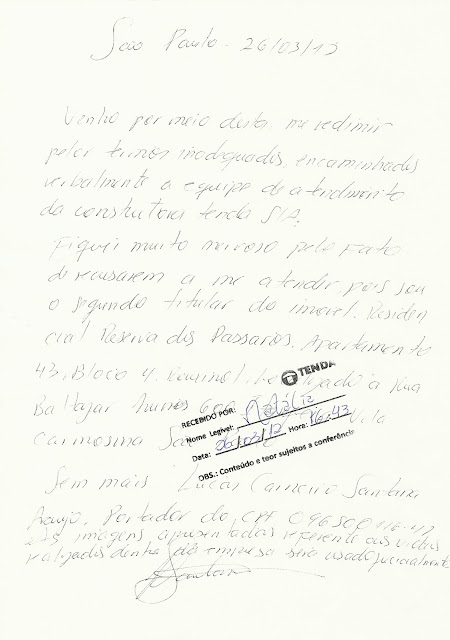 São Paulo - 26/03/13
Venho por meio desta, me redimir
pelos termos inadequados encaminhados
verbalmente a equipe de atendimento
da construtora tenda S/A.
Fiquei muito nervoso pelo Fato
de recusarem a me atender, pois sou
o segundo titular do imovel. Residen
cial Reserva dos Passaros. Apartamento
43, Bloco 4,
à Rua
Baltazar Nunes 600
Vila
Carmosina
TENDA
RECEBIDO POR:
Nome Legível: Natália
Data: 26/03/12 Hora: 16:43
OBS.: Conteúdo e teor sujeitos a conferência
Sem mais Lucas Carneiro Santana
Araujo. Portador do CPF
as imagens apresentadas referente aos videos
realizados dentro da empresa sera usado judicialmente